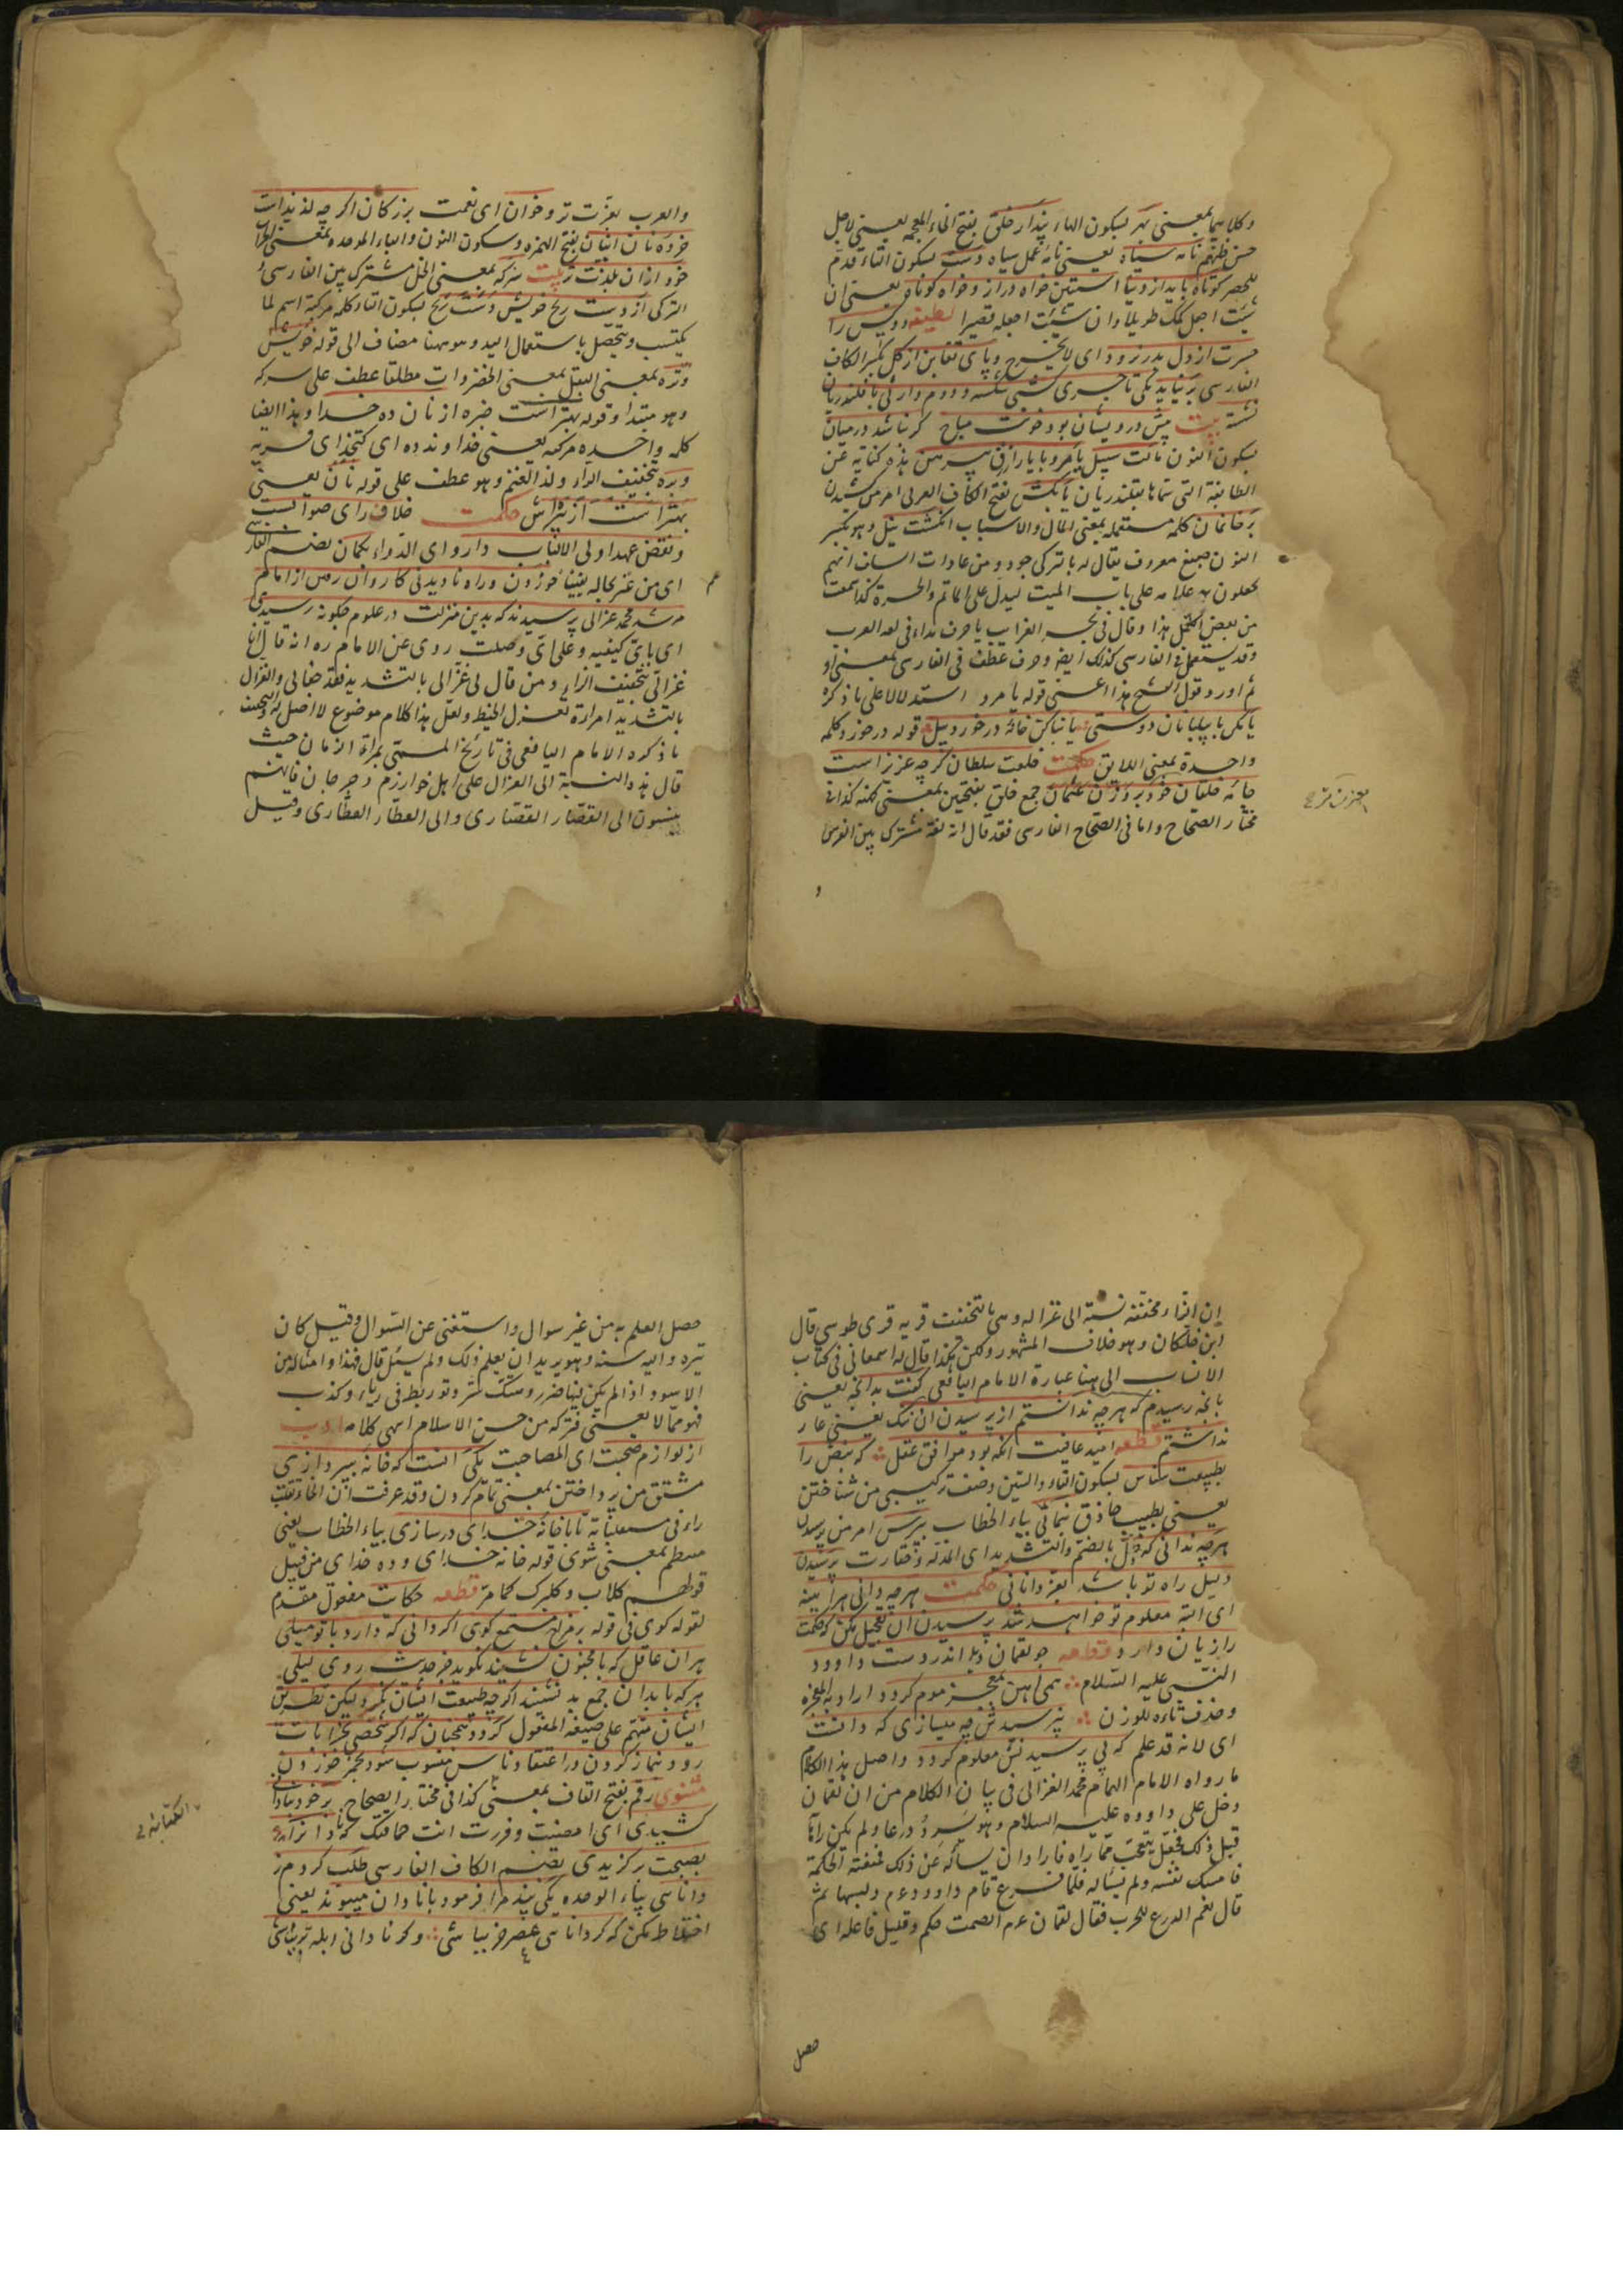 وكلاهما بمعنى بهر بسكون الهاء پندار خلق بفتح الخاء المعجمة يعنى لاجل
حسن ظنهم نامه سياه يعنى نامه عمل سياه دست بسكون التاء قدم
للحصر كوتاه بايد از دنيا استين خواه دراز و خواه كوتاه يعنى ان
شئت اجعل كمك طويلا وان شئت اجعله قصيرا لطيفه دو كس را
حسرت از دل بدر نرود اى لا يخرج و پاى تغابن از كل بكسر الكاف
الفارسى برنيايد يكى تاجرى كشتى شكسته و دوم وارثى با قلندريان
نشسته بيت پيش درويشان بود خونت مباح كر نباشد در ميان
بسكون النون مالت سبيل يا مرو با يار ازرق پيرهن هذه كناية عن
الطائفة التى سماها بقلندريان يا بكش بفتح الكاف العربى امر من كشيدن
بر خانمان كلمه مستعملة بمعنى المال والاسباب انكشت نيل وهو بكسر
النون صبغ معروف يقال له بالتركى جود ومن عادات انسان انهم
يجعلون به علامة على باب الميت ليدل على الماتم والحسرة كذا سمعت
من بعض الكمل هذا وقال فى بحر الغرايب يا حرف نداء فى لغة العرب
وقد يستعمل فى الفارسى كذلك ايضا وحرف عطف فى الفارسى بمعنى او
ثم اورد قول الشيخ هذا اعنى قوله يا مرو استدلالا على ما ذكره
يا مكن با پيلبانان دوستى يا بنا كن خانه در خورد پيل قوله در خورد كلمه
واحدة بمعنى اللايق حكمت خلعت سلطان كرچه عزيز است
جامه خلقان خود بروزن عثمان جمع خلق بفتحتين بمعنى كهنه كذا فى
مختار الصحاح واما فى الصحاح الفارسى فقد قال انه لغة مشترك بين الفرس
بعزت تر
و
والعرب بعزت تر و خوان اى نعمت بزركان اكرچه لذيذ است
خرده نان انبان بفتح الهمزه وسكون النون والباء الموحده بمعنى الجراب
خود از ان بلذت تر بيت سركه بمعنى الخل مشترك بين الفارسى و
التركى از دست رنج خويش دست رنج بسكون التاء كلمه مركبة اسم لما
يكتسب ويتحصل باستعمال اليد وهو ههنا مضاف الى قوله خويش
وتره بمعنى البقل بمعنى الخضروات مطلقا عطف على سركه
وهو مبتدا وقوله بهتر است خبره از نان ده خدا وهذا ايضا
كلمه واحده مركبه يعنى خداونده ده اى كتخداى قريه
وبره بتخفيف الراء ولد الغنم وهو عطف على قوله نان يعنى
بهتر است از براش حكمت خلاف راى صوابست
ونقض عهد اولى الالباب دارو اى الدواء بكمان بضم الفار
اى من غير حاله يقينا خوردن و راه ناديدنى كاروان رفتن از امام
مرشد محمد غزالى پرسيدند كه بدين منزلت در علوم چكونه رسيدى
اى باى كيفيه وعلى اى وصلت روى عن الامام ره انه قال انا
غزالى بتخفيف الزاء ومن قال لى غزالى بالتشديد فقد ضالى والغزال
بالتشديد امرأة تغزل الخيط ولعل هذا كلام موضوع لا اصل له والصحيح
ما ذكره الامام اليافعى فى تاريخ المسمى بمرآة الزمان حيث
قال هذه النسبة الى الغزال على اهل خوارزم وجرجان فانهم
ينسبون الى القصار القصارى والى العطار العطارى وقيل
ان الزاء مخففة نسبة الى غزاله وهى بالتخفيف قرية قرى طوس قال
ابن خلكان وهو خلاف المشهور ولكن هكذا قال له اسمعانى فى كتاب
الانساب الى هنا عبارة الامام اليافعى كفت بدانچه يعنى
بانجه رسيدم كه هرچه ندانستم از پرسيدن آن ننك يعنى عار
نداشتم قطعه اميد عافيت انكه بود موافق عقل كه نبض را
بطبيعت شناس بسكون التاء والسين وصف تركيبى من شناختن
يعنى بطبيب حاذق بنمائى بياء الخطاب بپرس امر من پرسيدن
هرچه ندانى كه ذل بالضم والتشديد اى المذلة وحقارت پرسيدن
دليل راه تو باشد بعز دانائى حكمت هرچه دانى هر آينه
اى البته معلوم تو خواهد شد پرسيدن ان تعجيل مكن كه حكمت
را زيان دارد قطعه چو لقمان ديد اندر دست داوود
النبى عليه السلام همى اهن بمعجز موم كردد اراد به المعجزه
وحذف تاءه للوزن نپرسيدش چه ميسازى كه دانست
اى لانه قد علم كه بى پرسيدنش معلوم كردد واصل هذا الكلام
ما رواه الامام الهمام محمد الغزالى فى بيان الكلام من ان لقمان
دخل على داوود عليه السلام وهو يسرد درعا ولم يكن رآها
قبل ذلك فجعل يتعجب مما راه فاراد ان يسأله عن ذلك فمنعته الحكمة
فامسك نفسه ولم يسأله فلما فرغ قام داوود عم ولبسها ثم
قال نعم الدرع للحرب فقال لقمان عم الصمت حكم وقليل فاعله اى
حصل
حصل العلم به من غير سوال واستغنى عن السوال وقيل كان
تيرد واليه سنه وهو يريد ان يعلم ذلك ولم يسئل قال فهذا وامثاله من
الاسود اذا لم يكن فيها ضرر وهتك ستر وتوريط فى رياء وكذب
فهو مما لا يعنى فتركه من حسن الاسلام انتهى كلامه ادب
از لوازم صحبت اى المصاحبت يكى انست كه خانه بپردازى
مشتق من پرداختن بمعنى تمام كردن وقد عرفت ان الخاء تقلب
زاء فى مستقبلاته تا با خانه خداى در سازى بياء الخطاب يعنى
منتظم بمعنى شوى قوله خانه خداى وده خداى من قبيل
قولهم كلاب وكلبرك كما مر قطعه حكايت مفعول مقدم
لقوله كوى فى قوله بر مزاج مستمع كوى اكر دانى كه دارد با تو ميلى
هر ان عاقل كه با مجنون نشيند نكويد جز حديث روى ليلى
هركه با بدان جمع به نشيند اكرچه طبيعت ايشان نكيرد ليكن بطريق
ايشان متهم على صيغة المفعول كردد همچنان كه اكر شخصى بخرابات
رود بنماز كردن در اعتقاد ناس منسوب شود بخمر خوردن
مثنوى رقم بفتح القاف بمعنى كذا فى مختار الصحاح بر خود بنادانى
كشيدى اى امضيت وقررت انت حماقتك كه نادانرا
بصحبت بركزيدى بضم الكاف الفارسى طلب كردم ز
دانائى بياء الوحده يكى پند مرا فرمود با نادان مپيوند يعنى
اختلاط مكن كه كر دانائى عصر خر بباشى وكر نادانى ابله تر بباشى
الكتابة